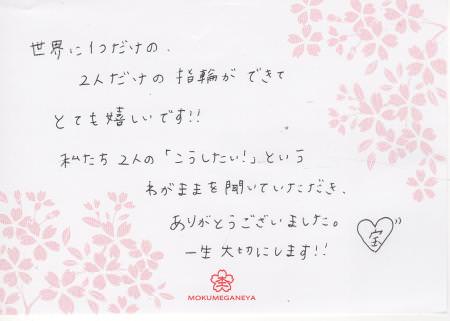 世界に1つだけの、
2人だけの指輪ができて
とても嬉しいです!!
私たち2人の「こうしたい!」という
わがままを聞いていただき、
ありがとうございました。
宝
一生大切にします!!
MOKUMEGANEYA